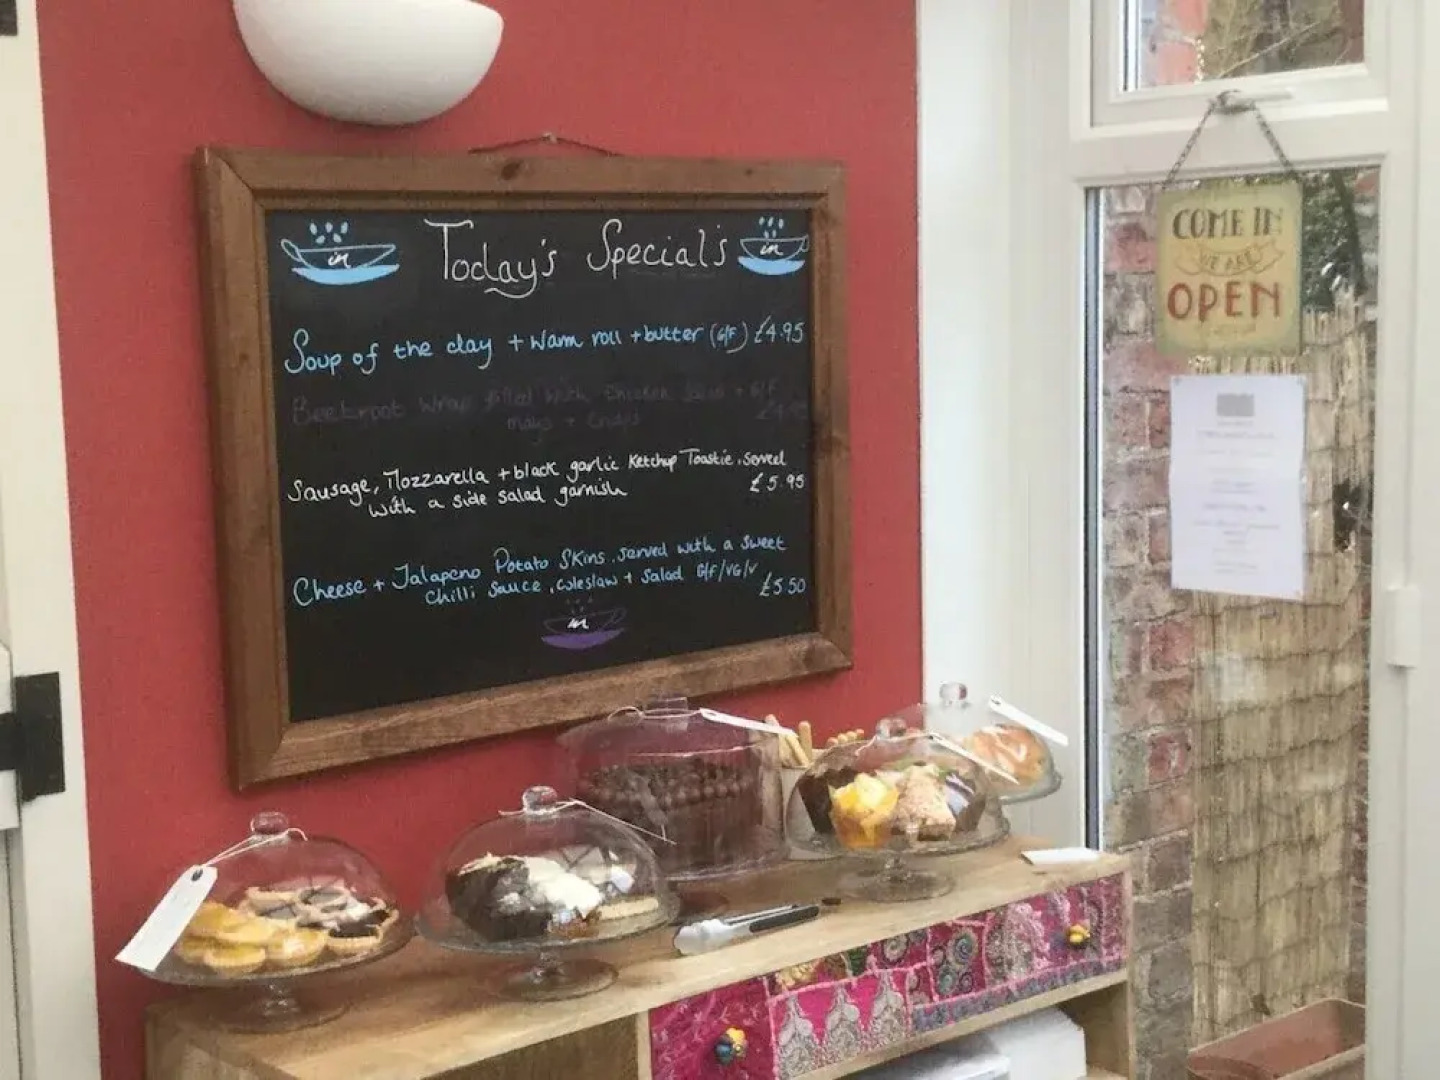 in Today's Special's in
Soup of the day + warm roll + butter (G/F) £4.95
Beetroot Wrap filled with Chicken + G/F
mayo + Crisps
Sausage, Mozzarella + black garlic Ketchup Toastie, served
with a side salad garnish £5.95
Cheese + Jalapeno Potato Skins, served with a sweet
Chilli Sauce, coleslaw + Salad G/F/VG/V £5.50
in
COME IN
WE ARE
OPEN